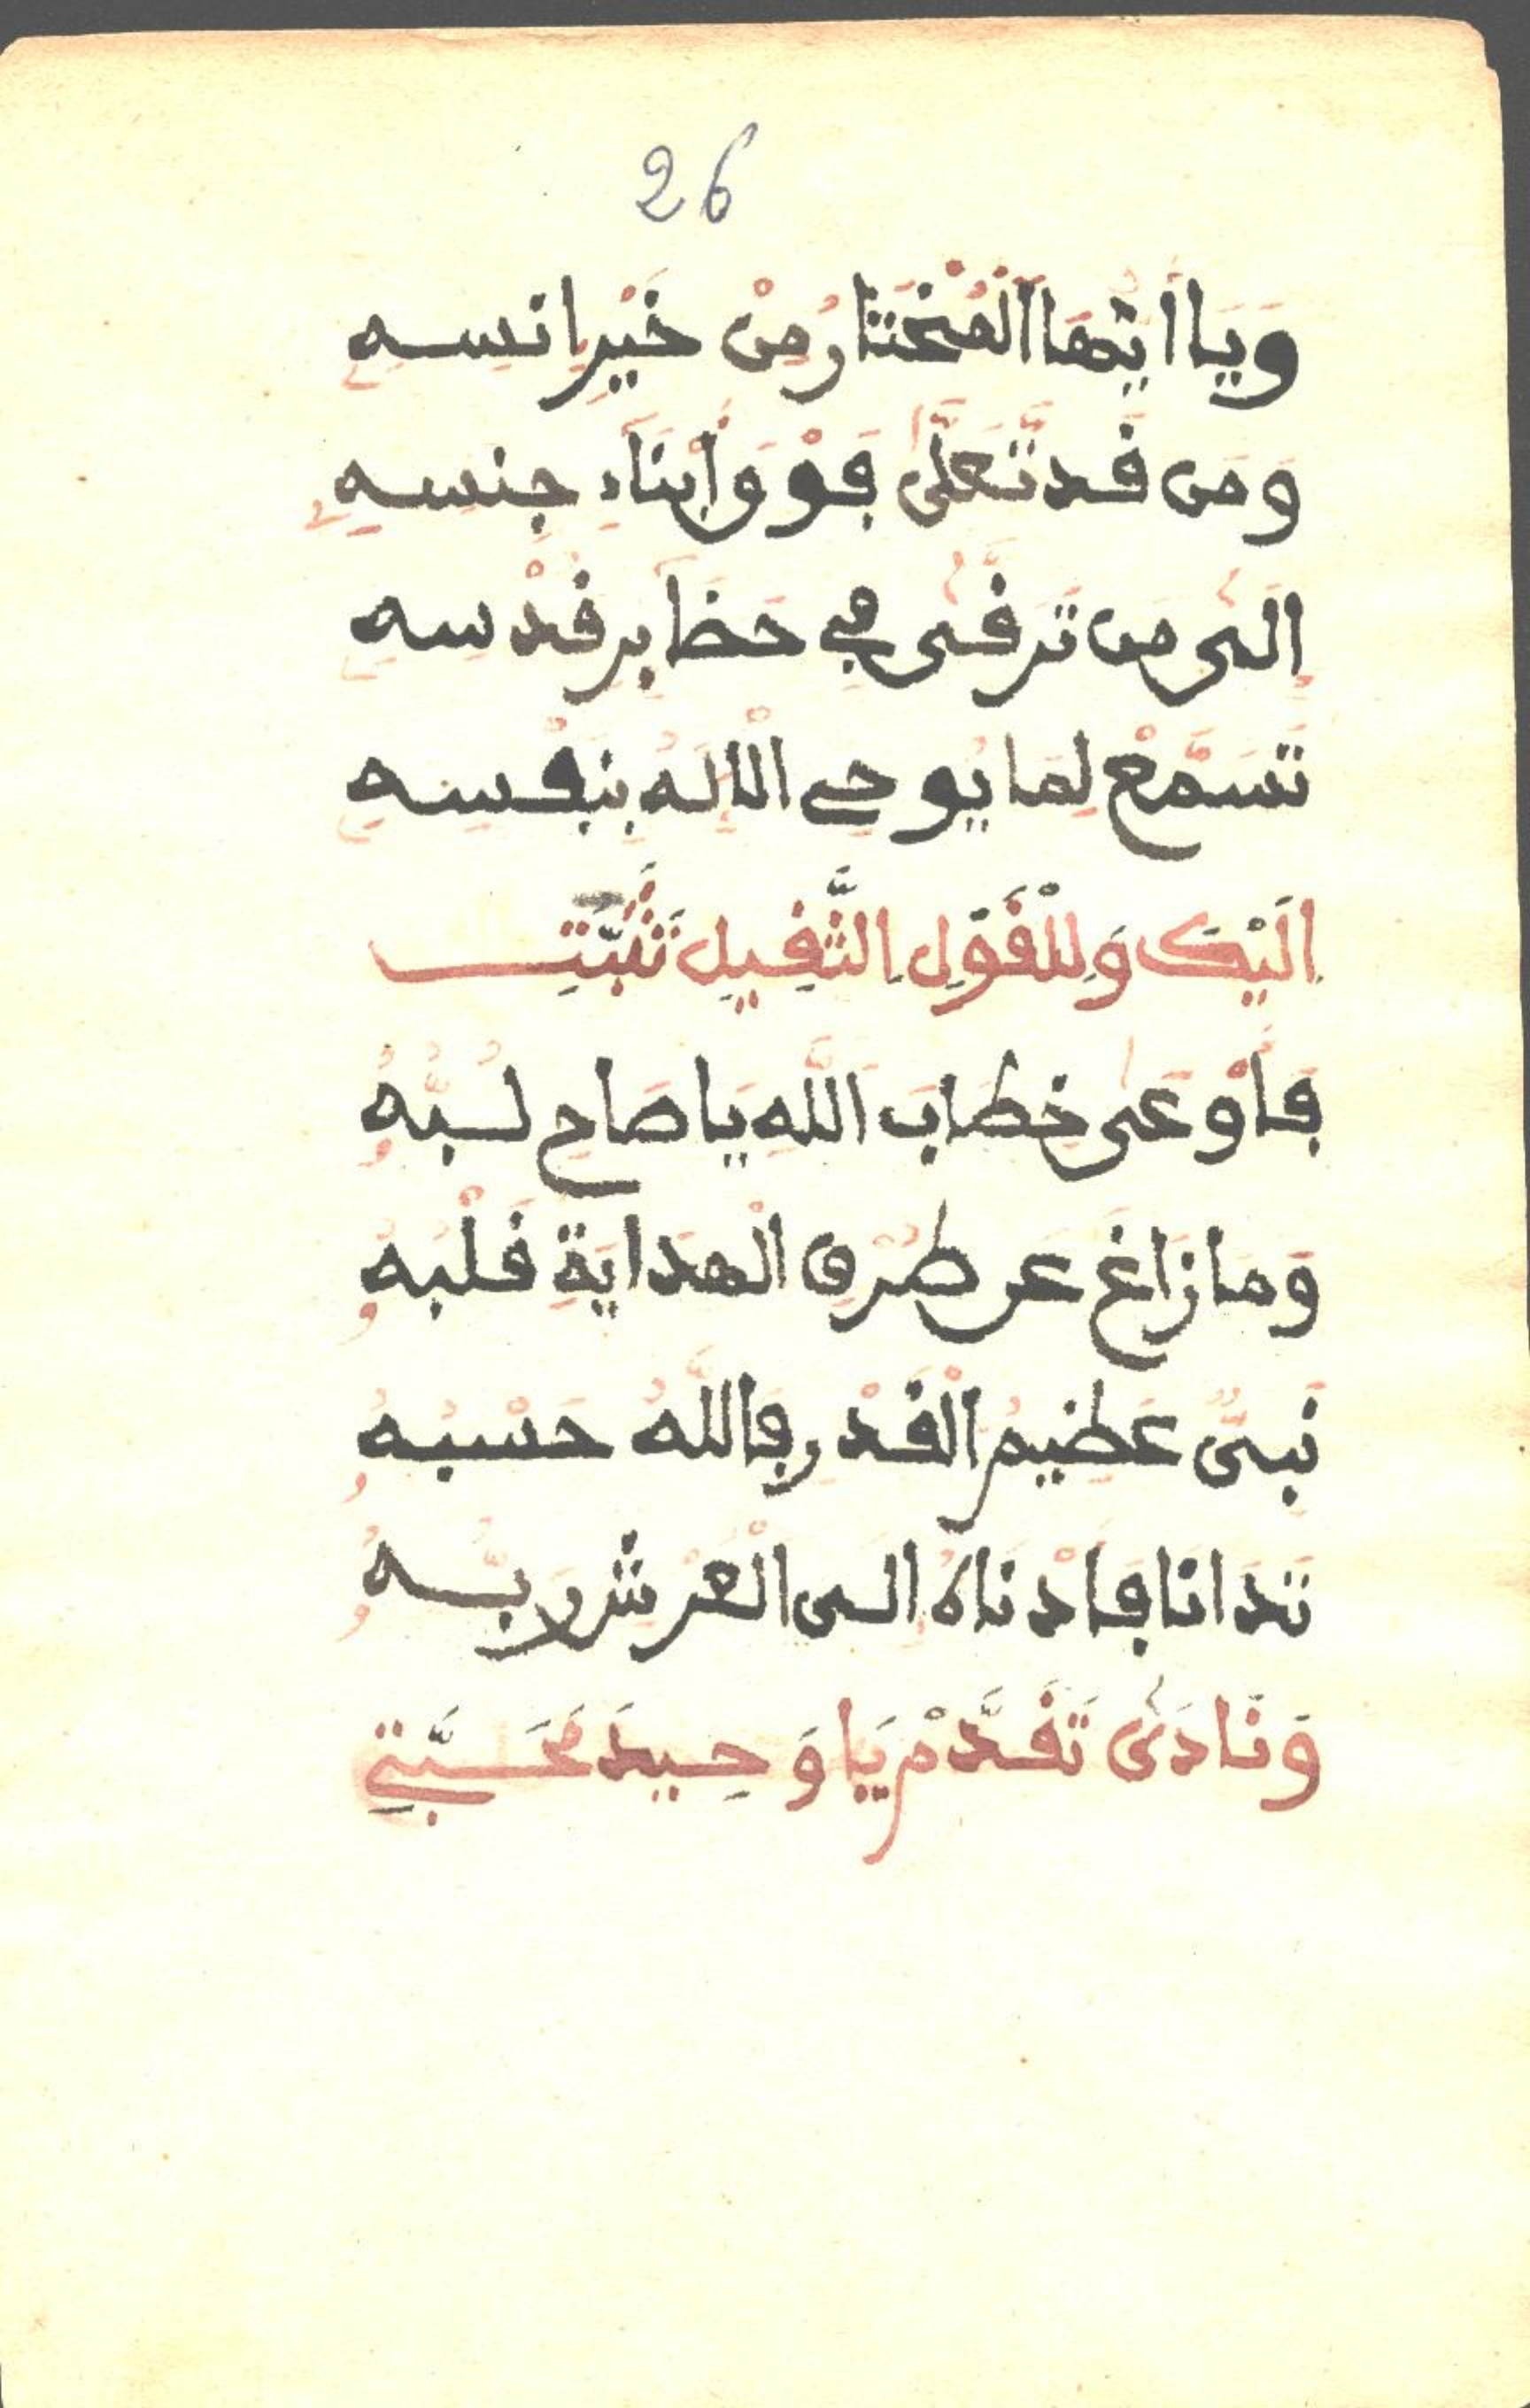 26
وَيَا اَيُّهَا الْمُخْتَارُ مِنْ خَيْرِ اِنسِهِ
وَمَن قَد تَّعَلَّى فَوْقَ أَبْنَاءِ جِنسِهِ
اِلَى مَن تَرَقَّى فِي حَظَآئِرِ قُدْسِهِ
تَسَمَّعْ لِمَا يُوحِي الْاِلَهُ بِنَفْسِهِ
اِلَيْكَ وَلِلْقَوْلِ الثَّقِيلِ تَثَبَّتِ
فَاَوْعَى خِطَابَ اللَّهِ يَا صَاحِ لُبُّهُ
وَمَا زَاغَ عَن طُرْقِ الْهِدَايَةِ قَلْبُهُ
نَبِيٌّ عَظِيمُ الْقَدْرِ فَاللَّهُ حَسْبُهُ
تَدَانَا فَاَدْنَاهُ اِلَى الْعَرْشِ رَبُّهُ
وَنَادَى تَقَدَّمْ يَا وَحِيدَ مَحَبَّتِي